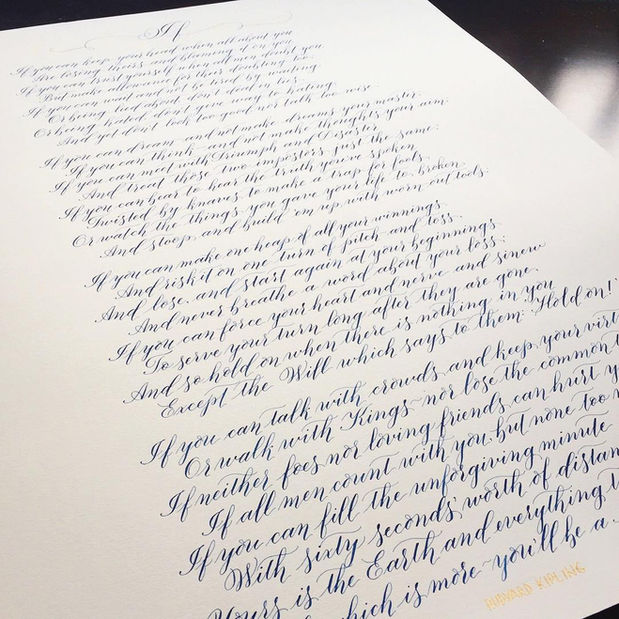 If
If you can keep your head when all about you
Are losing theirs and blaming it on you
If you can trust yourself when all men doubt you
But make allowance for their doubting too
If you can wait and not be tired by waiting
Or being lied about don't deal in lies
Or being hated don't give way to hating
And yet don't look too good nor talk too wise
If you can dream and not make dreams your master;
If you can think and not make thoughts your aim
If you can meet with Triumph and Disaster
And treat those two impostors just the same;
If you can bear to hear the truth you've spoken
Twisted by knaves to make a trap for fools,
Or watch the things you gave your life to, broken
And stoop and build 'em up with worn out tools.
If you can make one heap of all your winnings
And risk it on one turn of pitch and toss
And lose and start again at your beginnings
And never breathe a word about your loss;
If you can force your heart and nerve and sinew
To serve your turn long after they are gone
And so hold on when there is nothing in you
Except the Will which says to them: 'Hold on!'
If you can talk with crowds and keep your virt
Or walk with Kings~nor lose the common
If neither foes nor loving friends can hurt y
If all men count with you, but none too
If you can fill the unforgiving minute
With sixty seconds' worth of distan
Yours is the Earth and everything
which is more~you'll be a
RUDYARD KIPLING